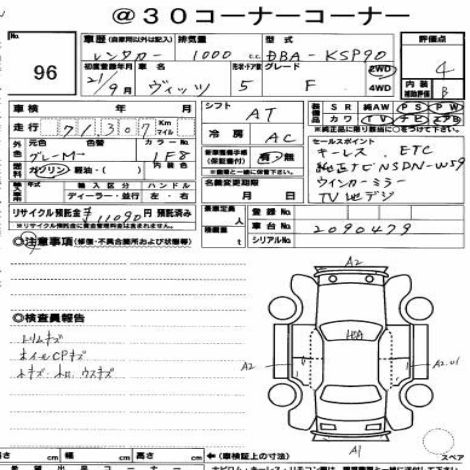 ＠３０コーナーコーナー
No. 96
車歴 (自家用以外は記入) レンタカー
排気量 1000 c.c.
型式 DBA-KSP90
評価点 4
初度登録年月 21/9月
車名 ヴィッツ
形状・ドア数 5
グレード F
2WD 4WD
内装補助評価 B
車検 年 月
シフト AT
装備品 SR 純AW PS PW
カワ TV ナビ エアB
走行 71307 Km マイル
冷房 AC
※純正品に限り該当に○をして下さい。
セールスポイント
キーレス. ETC
純正ナビNSDN-W59
ウインカーミラー
TV地デジ
外色 元色 グレーM 色替 カラーNo. 1F8
新車保証書 (保証書付) 有・無
燃料 ガソリン 軽油・( )
名義変更期限 月 日
輸入車 年式 輸入区分 ディーラー・並行 ハンドル 左・右
リサイクル預託金 ¥11090円 預託済み
※リサイクル預託金に資金管理料金は含まれません。
乗車定員 人
積載量 t
登録No.
車台No. 2090479
シリアルNo.
◎注意事項 (修復・不具合箇所および状態等)
◎検査員報告
トリムキズ
ホイルCPキズ
小キズ・小凹 ウスキズ
A2
HDA
A2
A2.U1
A1
スペア
長さ cm 幅 cm 高さ cm ←(車検証上の寸法)
希望出品コーナー